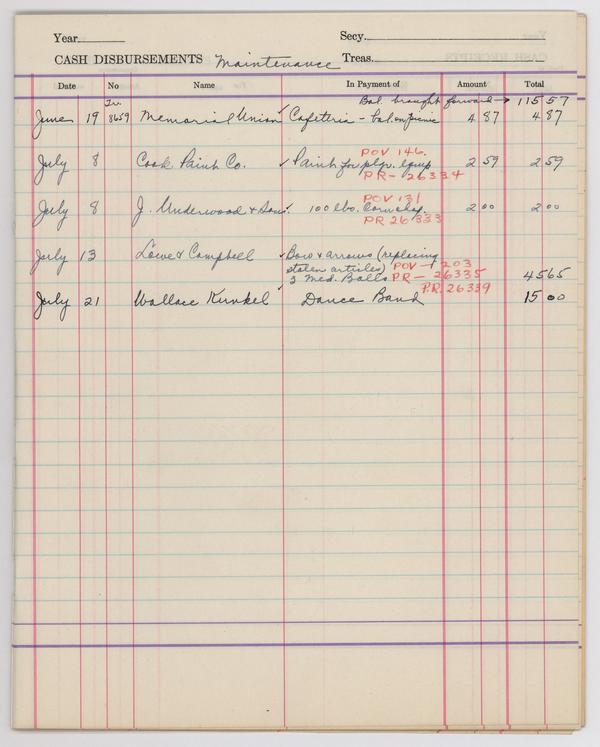 Year Secy.
CASH DISBURSEMENTS Maintenance Treas.
Date No Name In Payment of Amount Total
Bal. brought forward → 115 57
June 19 Tr. 8659 Memorial Union ✓ Cafeteria - bal. on picnic 4 87 4 87
POV 146.
July 8 Cook Paint Co. ✓ Paint for plgr. equip 2 59 2 59
PR - 26334
POV 131
July 8 J. Underwood & Sons ✓ 100 lbs. Corn 2 00 2 00
PR 26333
July 13 Lowe & Campbell ✓ Bow & arrows (replacing
stolen articles) POV - 1203
3 Med. Balls PR - 26335 45 65
P.R. 26339
July 21 Wallace Kunkel ✓ Dance Band 15 00